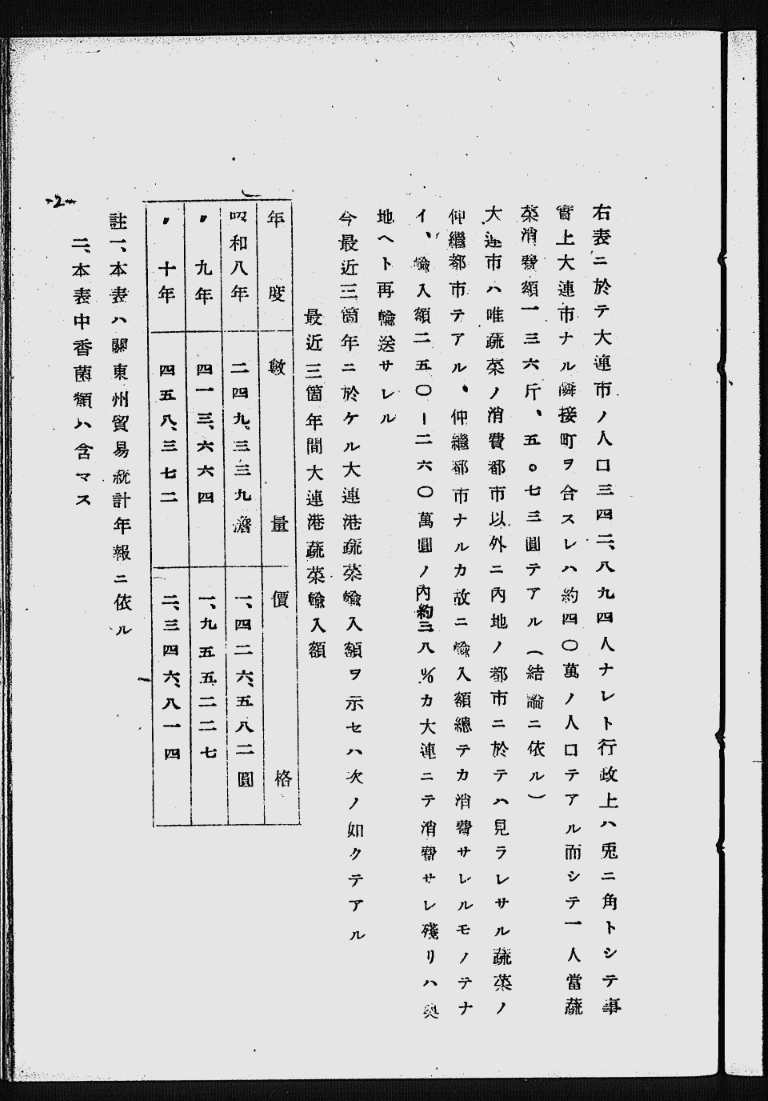 右表ニ於テ大連市ノ人口三四二、八九四人ナレト行政上ハ兎ニ角トシテ事
實上大連市ナル隣接町ヲ合スレハ約四〇萬ノ人口テアル而シテ一人當蔬
菜消費額一三六斤、五〇七三圓テアル(結論ニ依ル)
大連市ハ唯蔬菜ノ消費都市以外ニ內地ノ都市ニ於テハ見ラレサル蔬菜ノ
仲繼都市テアル、仲繼都市ナルカ故ニ輸入額總テカ消費サレルモノテナ
イ、輸入額二五〇ー二六〇萬圓ノ內約三八%カ大連ニテ消費サレ殘リハ奧
地ヘト再輸送サレル
今最近三箇年ニ於ケル大連港蔬菜輸入額ヲ示セハ次ノ如クテアル
最近三箇年間大連港蔬菜輸入額
年度 數量 價格
昭和八年 二四九、三三九擔 一、四二六、五八二圓
〃九年 四一三、六六四 一、九五五二二七
〃十年 四五八、三七二 二、三四六、八一四
註一、本表ハ關東州貿易統計年報ニ依ル
二、本表中香菌類ハ含マス
-2-